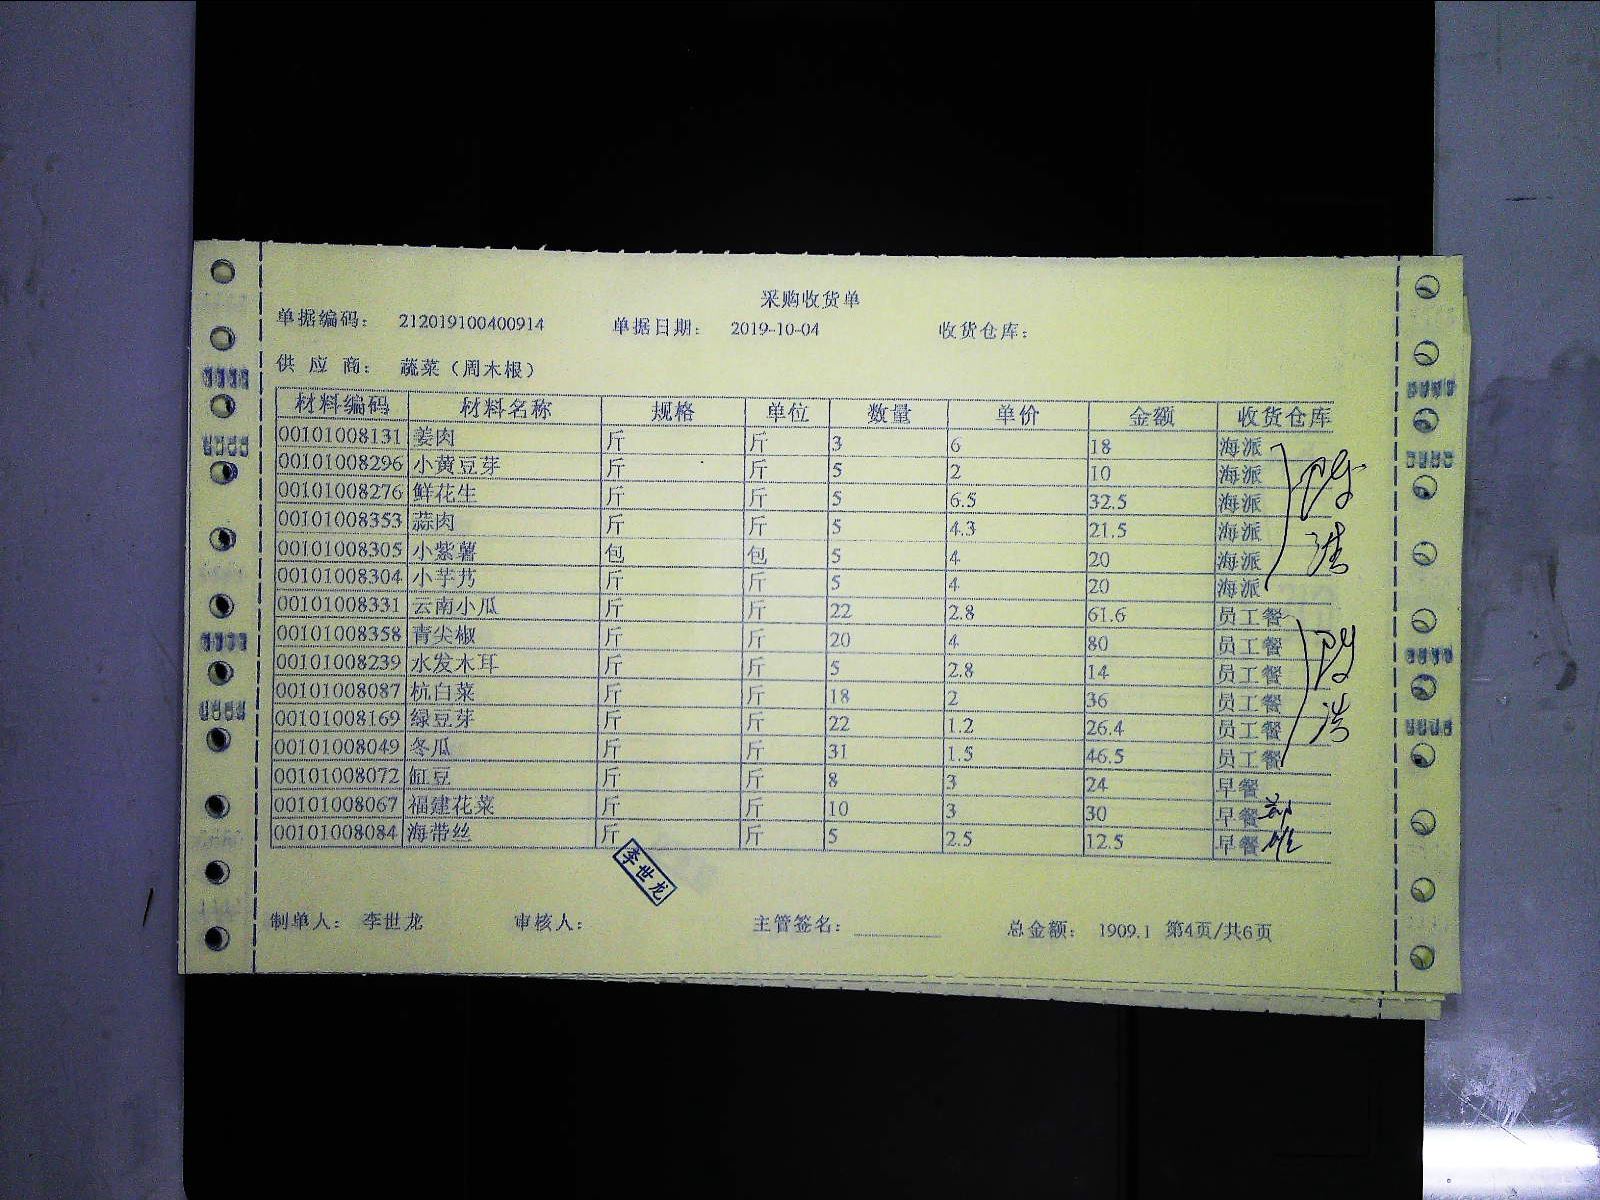 采购收货单
单据编码： 212019100400914 单据日期： 2019-10-04 收货仓库：
供 应 商： 蔬菜（周木根）
材料编码 材料名称 规格 单位 数量 单价 金额 收货仓库
00101008131 姜肉 斤 斤 3 6 18 海派
00101008296 小黄豆芽 斤 斤 5 2 10 海派
00101008276 鲜花生 斤 斤 5 6.5 32.5 海派
00101008353 蒜肉 斤 斤 5 4.3 21.5 海派
00101008305 小紫薯 包 包 5 4 20 海派
00101008304 小芋艿 斤 斤 5 4 20 海派
00101008331 云南小瓜 斤 斤 22 2.8 61.6 员工餐
00101008358 青尖椒 斤 斤 20 4 80 员工餐
00101008239 水发木耳 斤 斤 5 2.8 14 员工餐
00101008087 杭白菜 斤 斤 18 2 36 员工餐
00101008169 绿豆芽 斤 斤 22 1.2 26.4 员工餐
00101008049 冬瓜 斤 斤 31 1.5 46.5 员工餐
00101008072 缸豆 斤 斤 8 3 24 早餐
00101008067 福建花菜 斤 斤 10 3 30 早餐
00101008084 海带丝 斤 斤 5 2.5 12.5 早餐
李世龙
制单人： 李世龙 审核人： 主管签名： 总金额： 1909.1 第4页/共6页